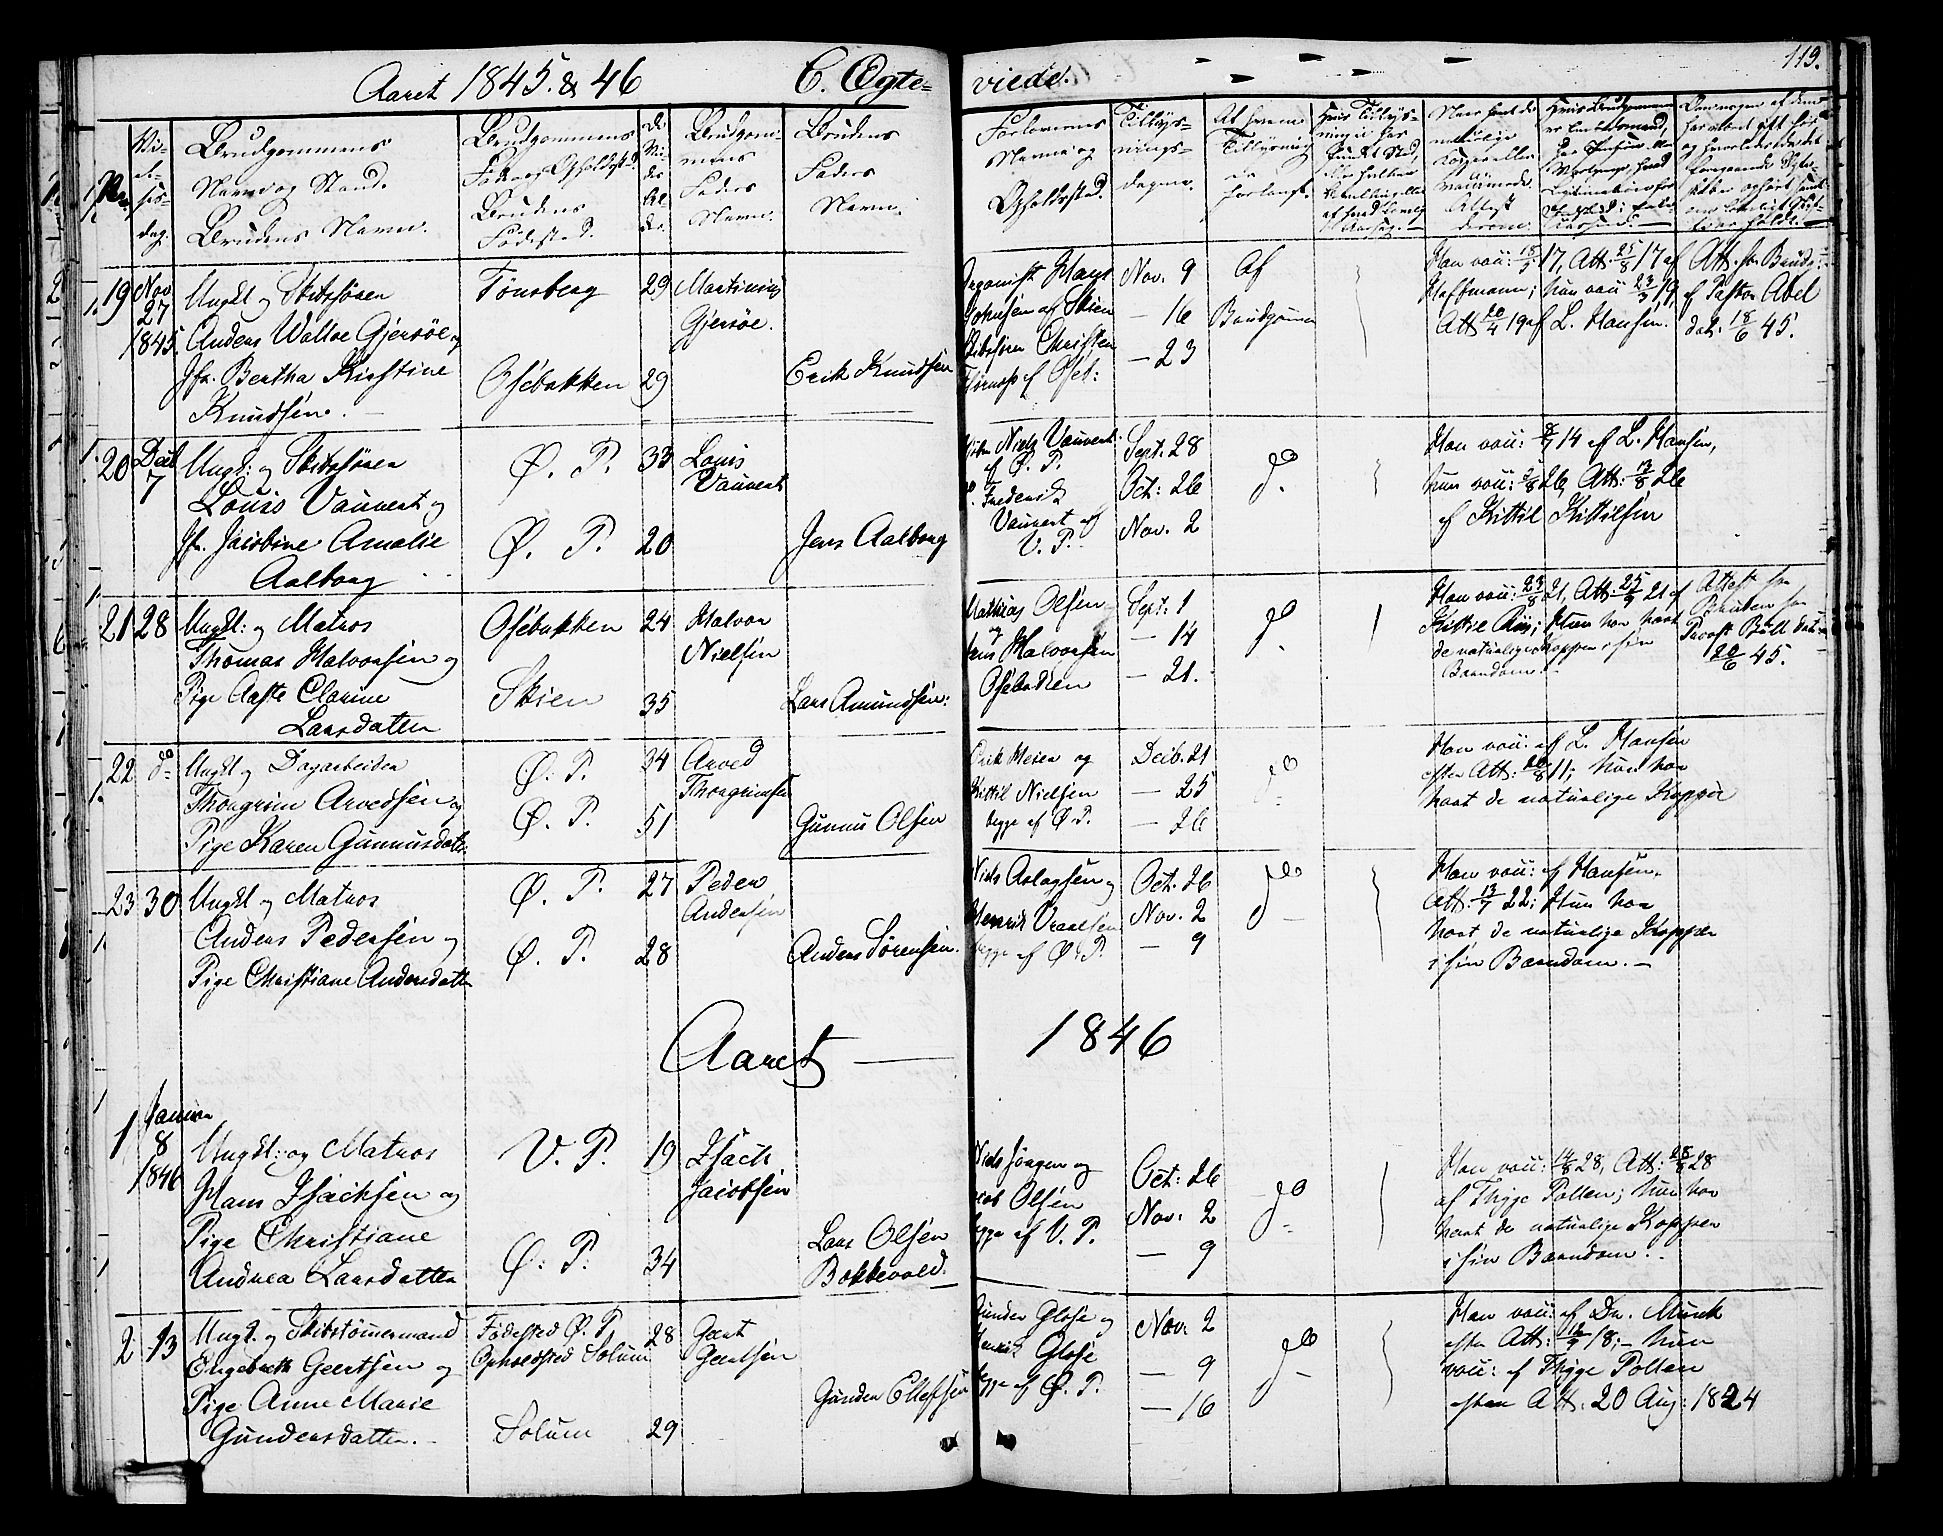 Aaret 1845 & 46 C. Ægte= viede.
119.
No.
Vi-
el-
ses-
dag.
Brudgommens
Navn og Stand.
Brudens Navn.
Brudgommens
Brudens
Fødested.
Brudgom-
mens
Faders
Navn.
Brudens
Faders
Navn.
Forlovernes
Navne og
Opholdssted.
Tillys-
nings-
dagene.
Af hvem
Tillysning
er
forlangt.
19 Nov. 27 1845. Ungkl. og Skibsfører
Anders Walløe Gjersøe og
Jfr. Bertha Kirstine
Knudsen.
Tønsberg 29 Martinius
Gjersøe.
Osebakken 29 Erik Knudsen
Organist Hans
Johnsen af Skien
Skibsfører Christen
Nov. 9
— 16
— 23
Af
Brudgommen
Han vac: 17, Att. 25/8 17 af
Hoffmann; hun vac: 23/3 19,
Att 20/4 19 af L. Hansen.
Att. fra Brudg:
af Pastor Abel
dat. 18/6 45.
20 Decb 7 Ungkl: og Skibsfører
Louis Vauvert og
Jfr. Jacobine Amalie
Aalborg
Ø. P. 33 Louis
Vauvert
Ø. P. 20 Jens Aalborg
Niels Vauvert
af Ø. P.
Frederik
Vauvert af
V. P.
Sept. 28
Oct: 26
Nov. 2
do
Han vac: 14 af L. Hansen,
hun vac: 26, Att: 13/8 26
af Kittil Kittilsen
21 28 Ungkl: og Matros
Thomas Halvorsen og
Pige Aaste Clarine
Larsdatter
Osebakken 24 Halvor
Nielsen
Skien 35 Lars Amundsen.
Mathias Olsen
og
Jens Halvorsen
Osebakken
Sept. 1
— 14
— 21.
do
Han vac: 23/8 21, Att. 25/9 21 af
Kittil Riis; Hun har havt
de naturlige Kopper i sin
Barndom.
Attest fra
Bruden fra
Provst Bull dat:
20/6 45.
22 do Ungkl og Dagarbeider
Thorgrim Arvedsen og
Pige Karen Gunnusdatter
Ø. P. 34 Arved
Thorgrimsen
Ø. P. 51 Gunnu Olsen
Erik Meier og
Kittil Nielsen
begge af Ø P.
Decb. 21
— 25
— 26
do
Han vac: af L. Hansen
efter Att: 11; hun har
havt de naturlige Kopper
23 30 Ungkl og Matros
Anders Pedersen og
Pige Christiane Andersdatter
Ø. P. 27 Peder
Andersen
Ø. P. 28 Anders Sørensen.
Niels Aslagsen og
Henrik Vraalsen
begge af Ø. P.
Oct. 26
Nov. 2
— 9
do
Han vac: af Hansen.
Att. 13/7 22; Hun har
havt de naturlige Kopper
i sin Barndom. —
Aaret — 1846
1 Januar 8 1846 Ungkl: og Matros
Hans Isacksen og
Pige Christiane
Andrea Larsdatter
V. P. 19 Isach
Jacobsen
Ø. P. 34 Lars Olsen
Bakkevold.
Niels Jørgen og
Olsen
begge af V. P.
Oct: 26
Nov. 2
— 9
do
Han vac: 14/8 28, Att: 28
af Thyge Polten; hun har
havt de naturlige Kopper
i sin Barndom.
2 13 Ungk. og Skibstømmermand
Engebreth Geertsen og
Pige Anne Marie
Gundersdatter. —
Fødested Ø. P
Opholdsted Solum 28 Geert
Geertsen
Solum 29 Gunder Ellefsen
Gunder Glose og
Henrik Glose
begge af Ø. P.
Nov. 2
— 9
— 16
do
Han vac: af Dr. Munk
efter Att: 18; — hun
vac: af Thyge Polten
efter Att. 20 Aug: 1824